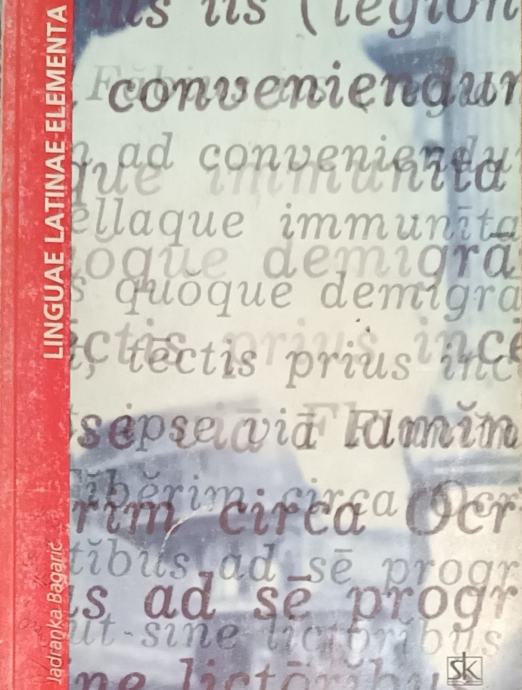 LINGUAE LATINAE ELEMENTA
Jadranka Bagarić
iis (legion
conveniendum
ad conveniendu
que immunita
ellaque immunīta
oque demigrā
s quŏque demigra
ctis prius ince
tēctis prius inc
sepse viā Flamĭn
Tĭbĕrim circa Ocr
rim circa Ocr
tĭbus ad sē progr
is ad sē progr
ut sine lictōribus
ine lictōribu
sk